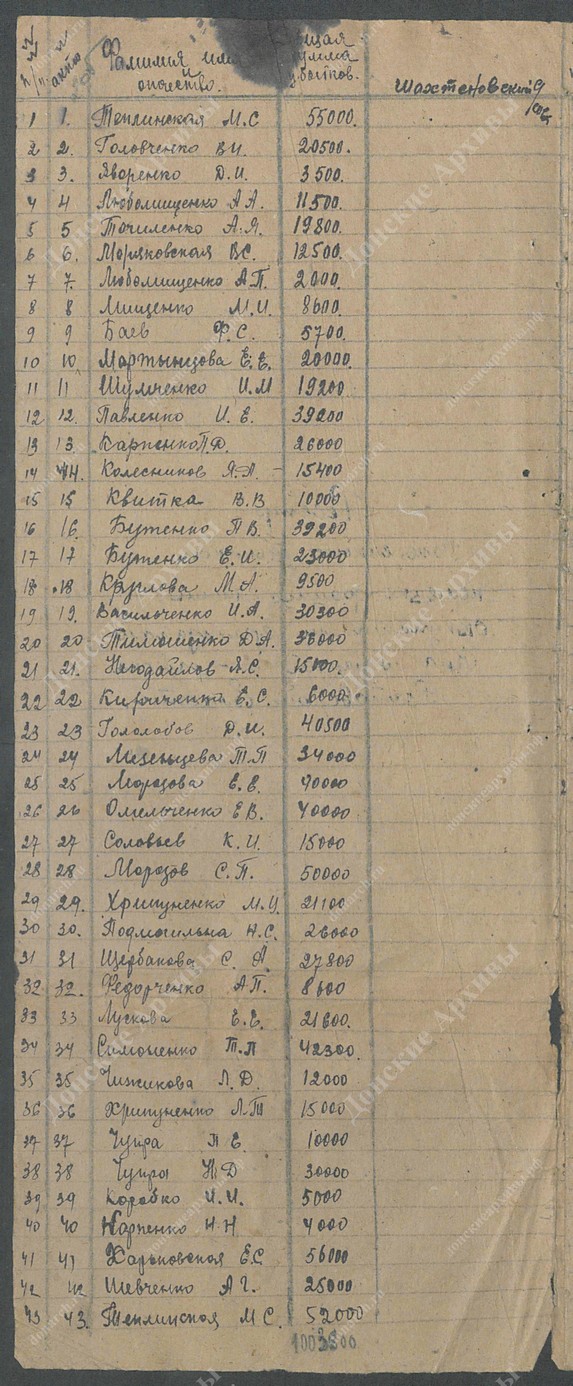 №№ п/п. № акта Фамилия имя и отчество. общая сумма убытков. Шахтеновский с/сов
1 1. Теплинская М.С 55000.
2 2. Головченко В.И. 20500.
3 3. Яворенко Д.И. 3500.
4 4 Любомищенко А А. 11500.
5 5 Точиленко А.Я. 19800.
6 6. Моряковская В.С. 12500.
7 7. Любомищенко А.П. 2000.
8 8 Мищенко М.И. 8600.
9 9 Баев Ф.С. 5700.
10 10. Мартынцова Е.Е. 20000.
11 11 Шумченко И.М 19200
12 12. Павленко И.Е. 39200
13 13. Карпенко П.Д. 26000
14 14. Колесников Я.А. - 15400
15 15 Квитка В.В 10000
16 16. Бутенко П В. 39200
17 17 Бутенко Е.И. 23000
18 18 Круглова М.А. 9500
19 19. Васильченко И.А. 30300
20 20 Тимошенко Д.А. 36000
21 21. Негодайлов Я.С. 15000.
22 22 Кириченко Е.С. 6000
23 23 Гололобов Д.И. 40500
24 24 Мизенцева Т.П 34000
25 25 Морозова Е.Е. 40000
26 26 Омельченко Е В. 40000
27 27 Соловьев К.И. 15000
28 28 Морозов С.П. 50000
29 29. Хрипуненко М.И. 21100
30 30. Подмогильна Н.С. 26000
31 31 Щербакова С. А 27800
32 32. Федорченко А.П. 8600
33 33 Лускова Е.Е. 21600.
34 34 Симоненко Т.П 42300.
35 35 Чижикова Л.Д. 12000
36 36 Хрипуненко Л.Т 15000
37 37 Чупра П Е. 10000
38 38 Чупра Н Д 30000
39 39 Коробко И.И. 5000
40 40 Карпенко Н Н 4000
41 41 Харьковская Е.С 56000
42 42 Шевченко А Г. 25000
43 43. Теплинская М С. 52000
1003800